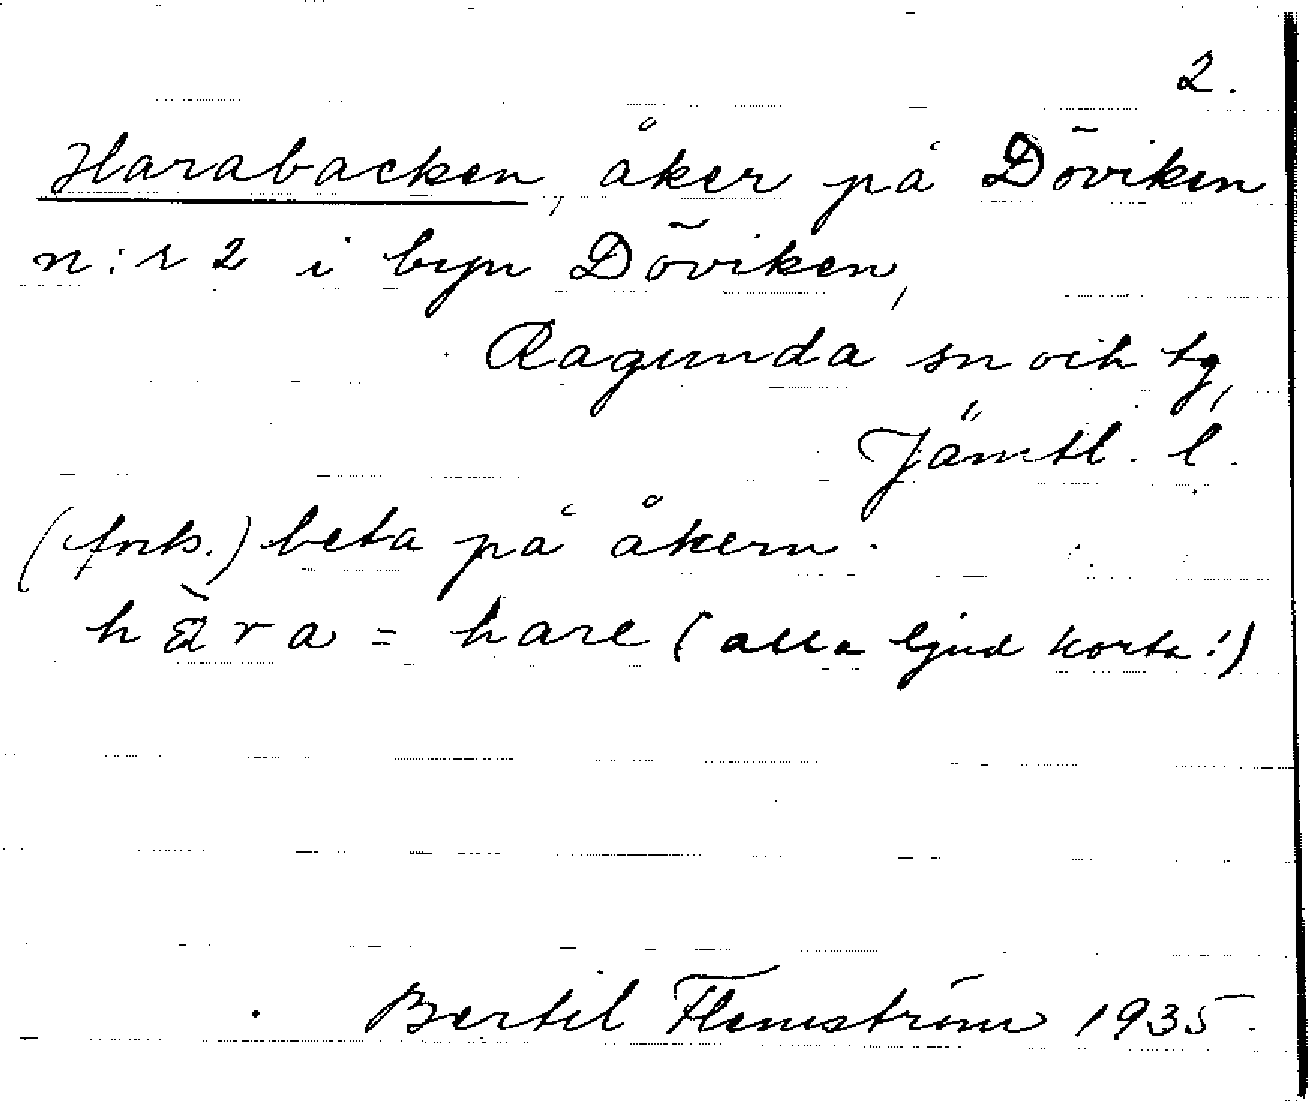 2.
Harabacken, åker på Döviken
n:r 2 i byn Döviken,
Ragunda sn och tg,
Jämtl. l.
(forts.) beta på åkern.
hàra = hare (alla ljud korta!)
Bertil Flemström 1935